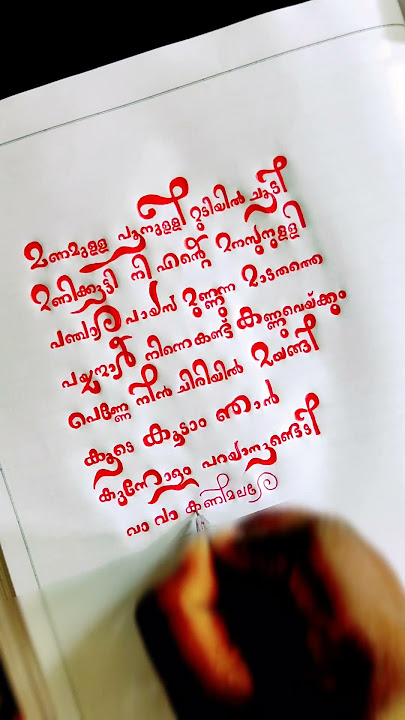 മണമുള്ള പൂനുള്ളി മുടിയിൽ ചൂടി
മണിക്കുട്ടി നീ എന്റെ മനസുനുള്ളി
പഞ്ചാര പായസ് മുണ്ണുന്ന മാടതത്തെ
പയ്യന്മാർ നിന്നെകണ്ട് കണ്ണുവെയ്ക്കും
പെണ്ണേ നിൻ ചിരിയിൽ മയങ്ങി
കൂടെ കൂടാം ഞാൻ
കുന്നോളം പറയാനുണ്ടെടീ
വാ വാ കണിമലരേ